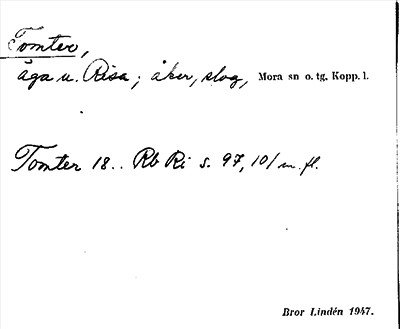 Tomter,
äga u. Risa; åker, slog, Mora sn o. tg. Kopp. l.
Tomter 18.. Rb Ri s. 97, 101 m. fl.
Bror Lindén 1947.